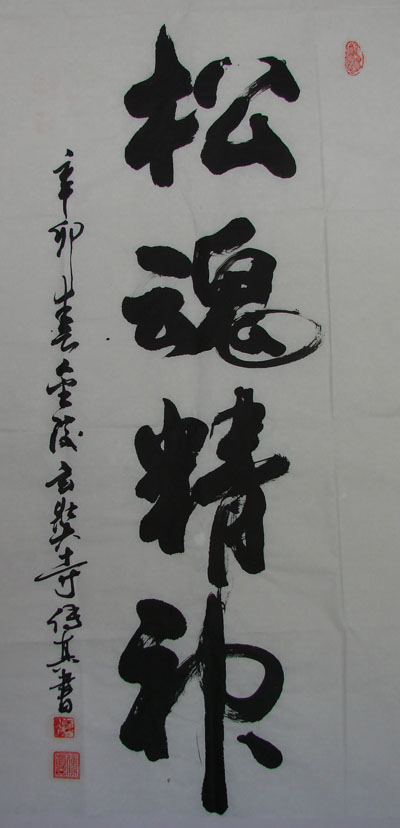 松魂精神
辛卯春金陵玄奘寺传真书